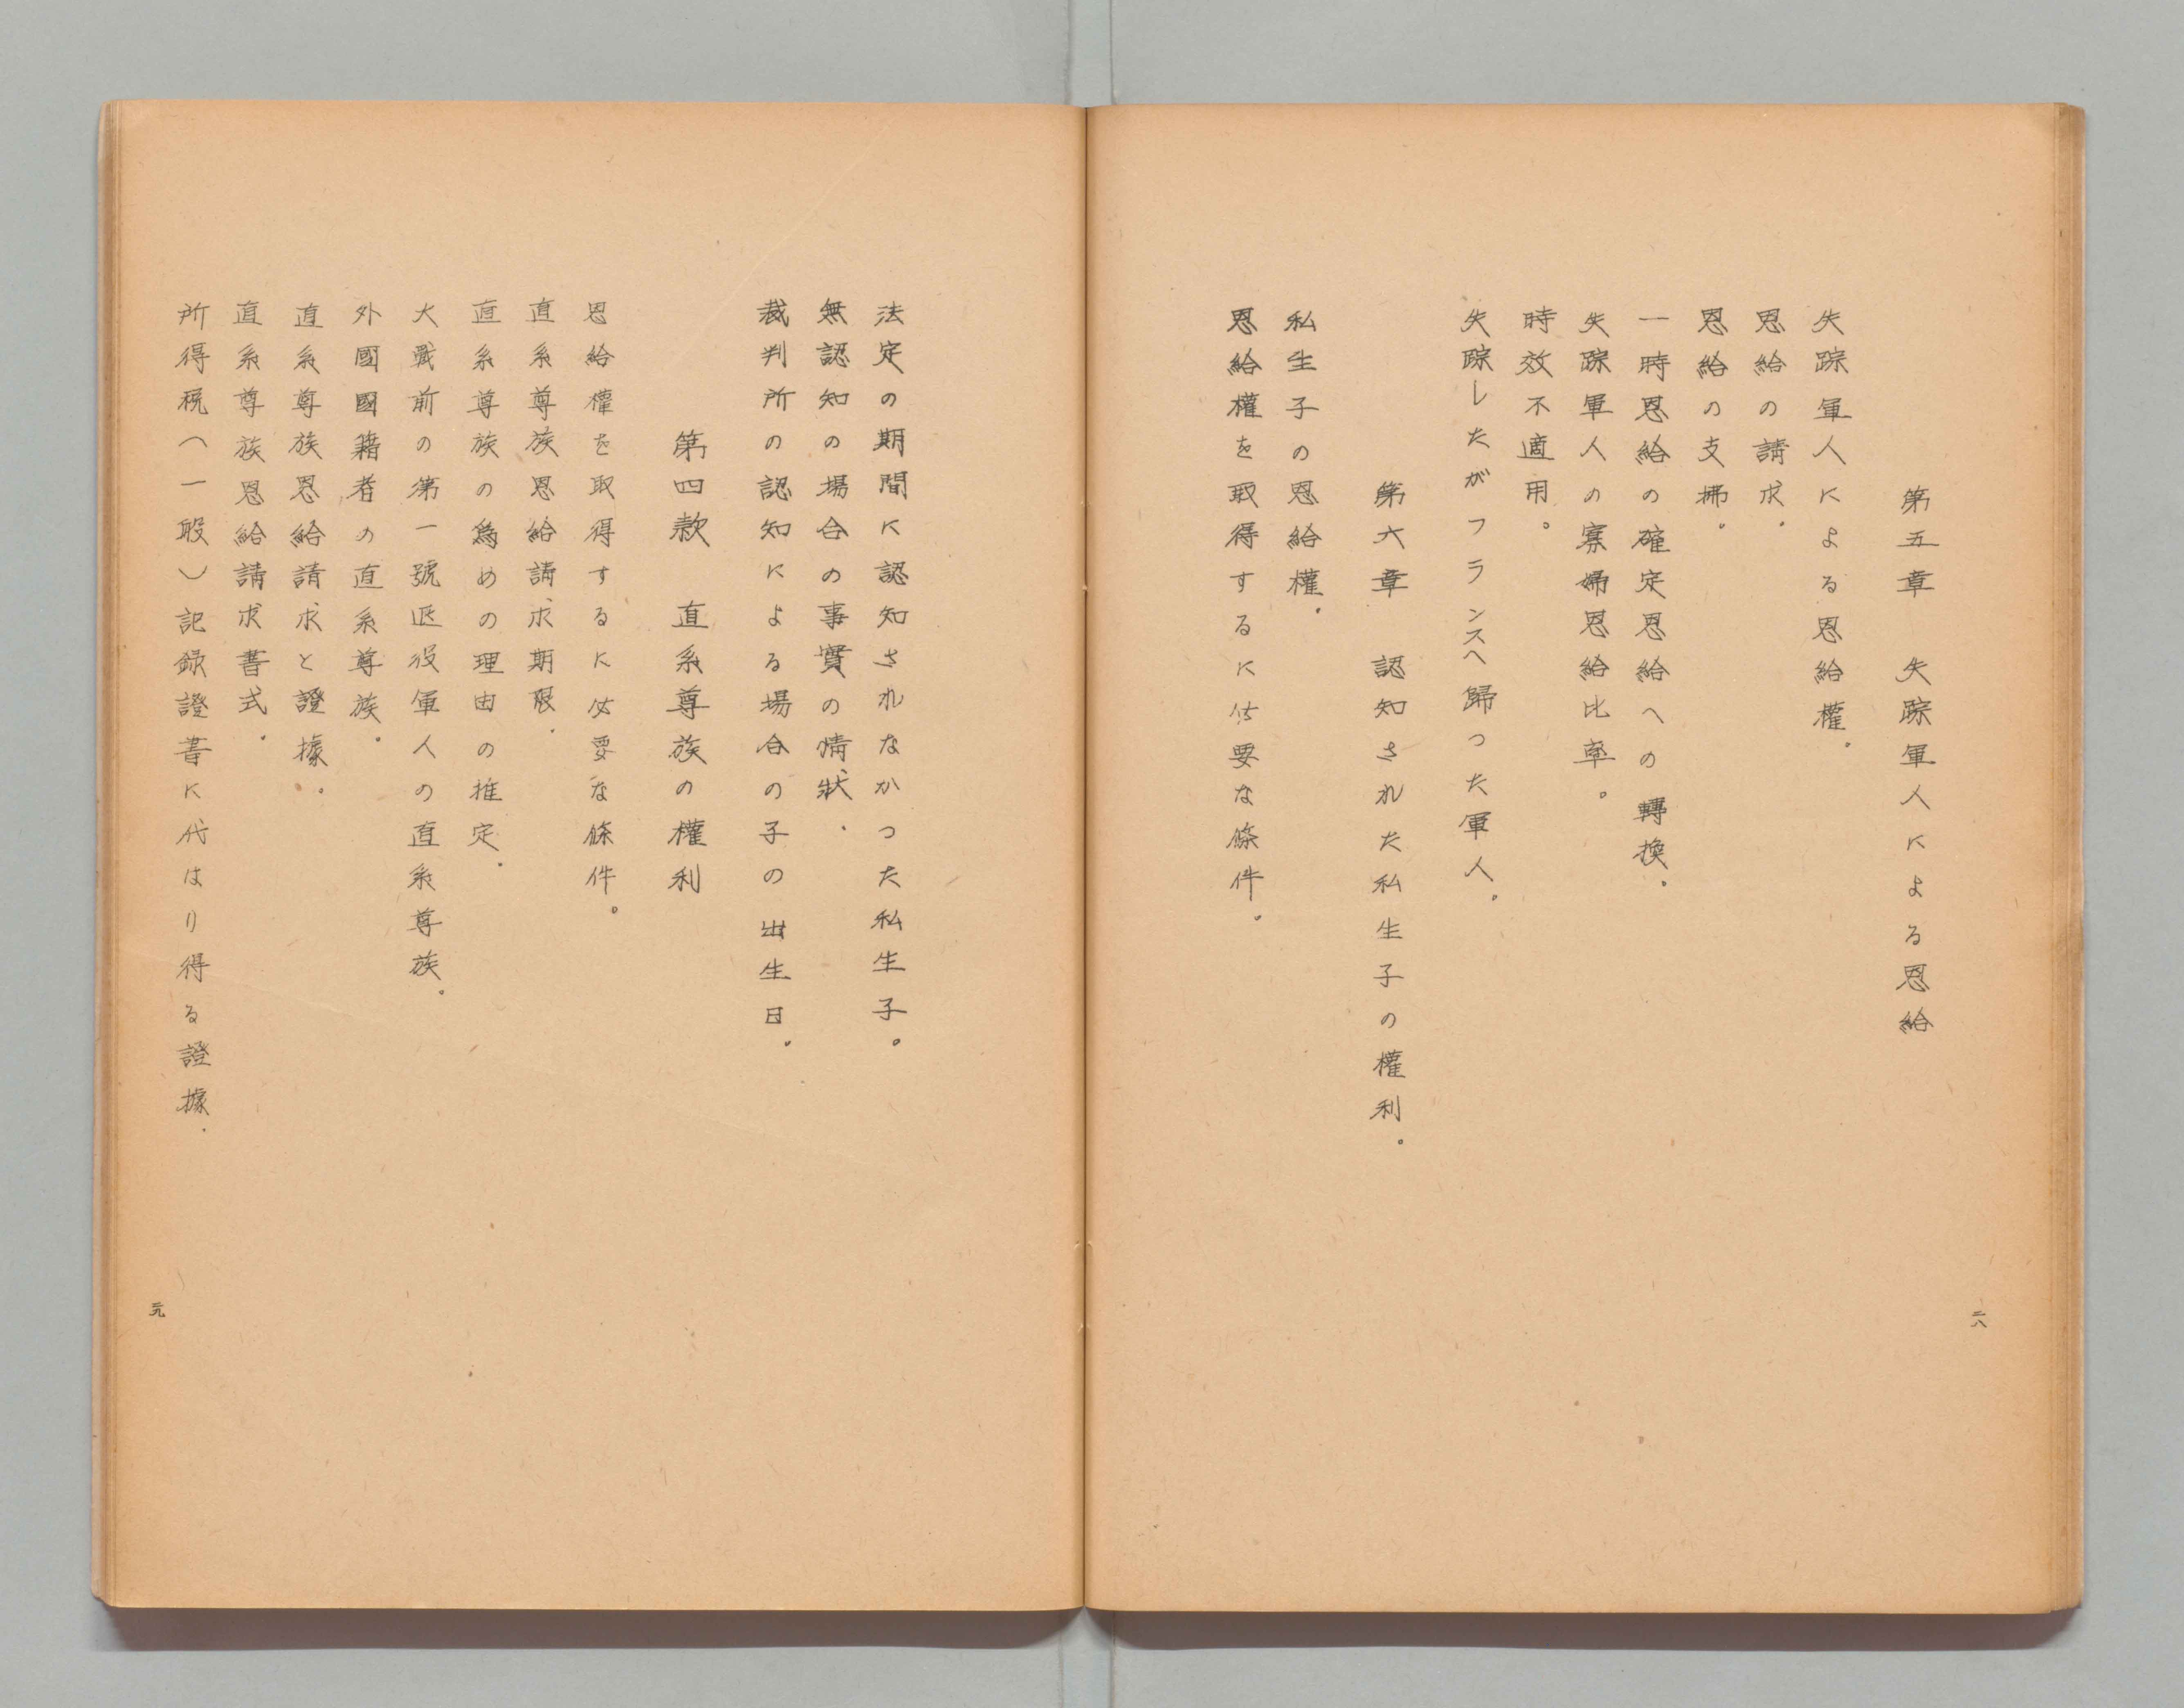 第五章　失踪軍人による恩給
失踪軍人による恩給權。
恩給の請求。
恩給の支拂。
一時恩給の確定恩給への轉換。
失踪軍人の寡婦恩給比率。
時效不適用。
失踪したがフランスへ歸つた軍人。
第六章　認知された私生子の權利。
私生子の恩給權。
恩給權を取得するに必要な條件。
二八
法定の期間に認知されなかつた私生子。
無認知の場合の事實の情狀。
裁判所の認知による場合の子の出生日。
第四款　直系尊族の權利
恩給權を取得するに必要な條件。
直系尊族恩給請求期限。
直系尊族の爲めの理由の推定。
大戰前の第一號退役軍人の直系尊族。
外國國籍者の直系尊族。
直系尊族恩給請求と證據。
直系尊族恩給請求書式。
所得税（一般）記録證書に代はり得る證據.
二九